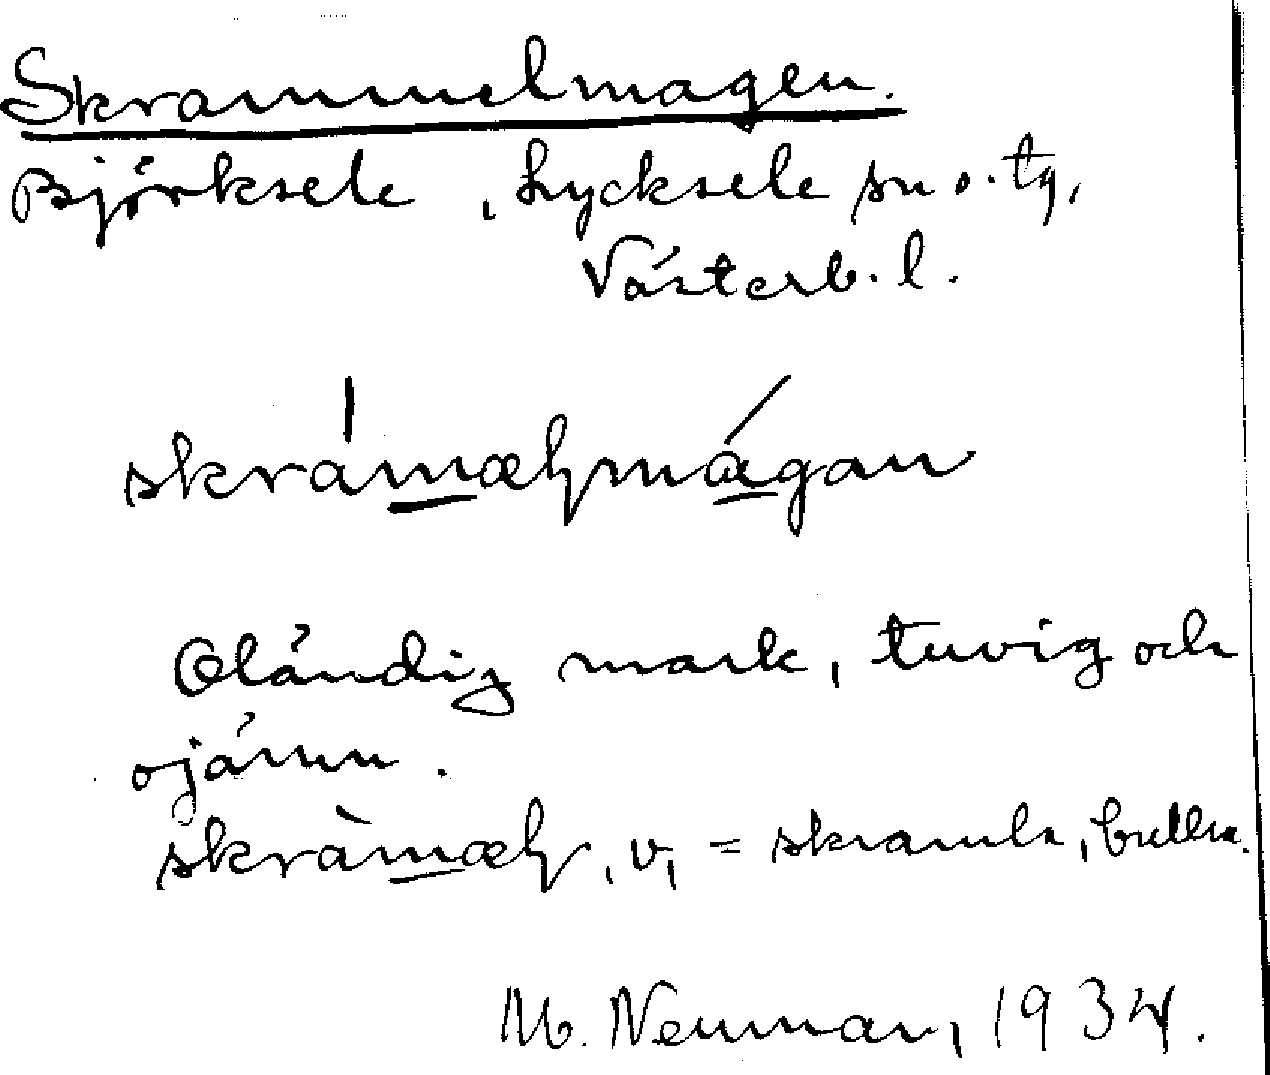 Skrammelmagen.
Björksele, Lycksele sn o. tg,
Västerb. l.
skrámæɭmágan
Oländig mark, tuvig och
ojämn.
skràmæɭ, v, = skramla, bullra.
M. Neuman, 1934.